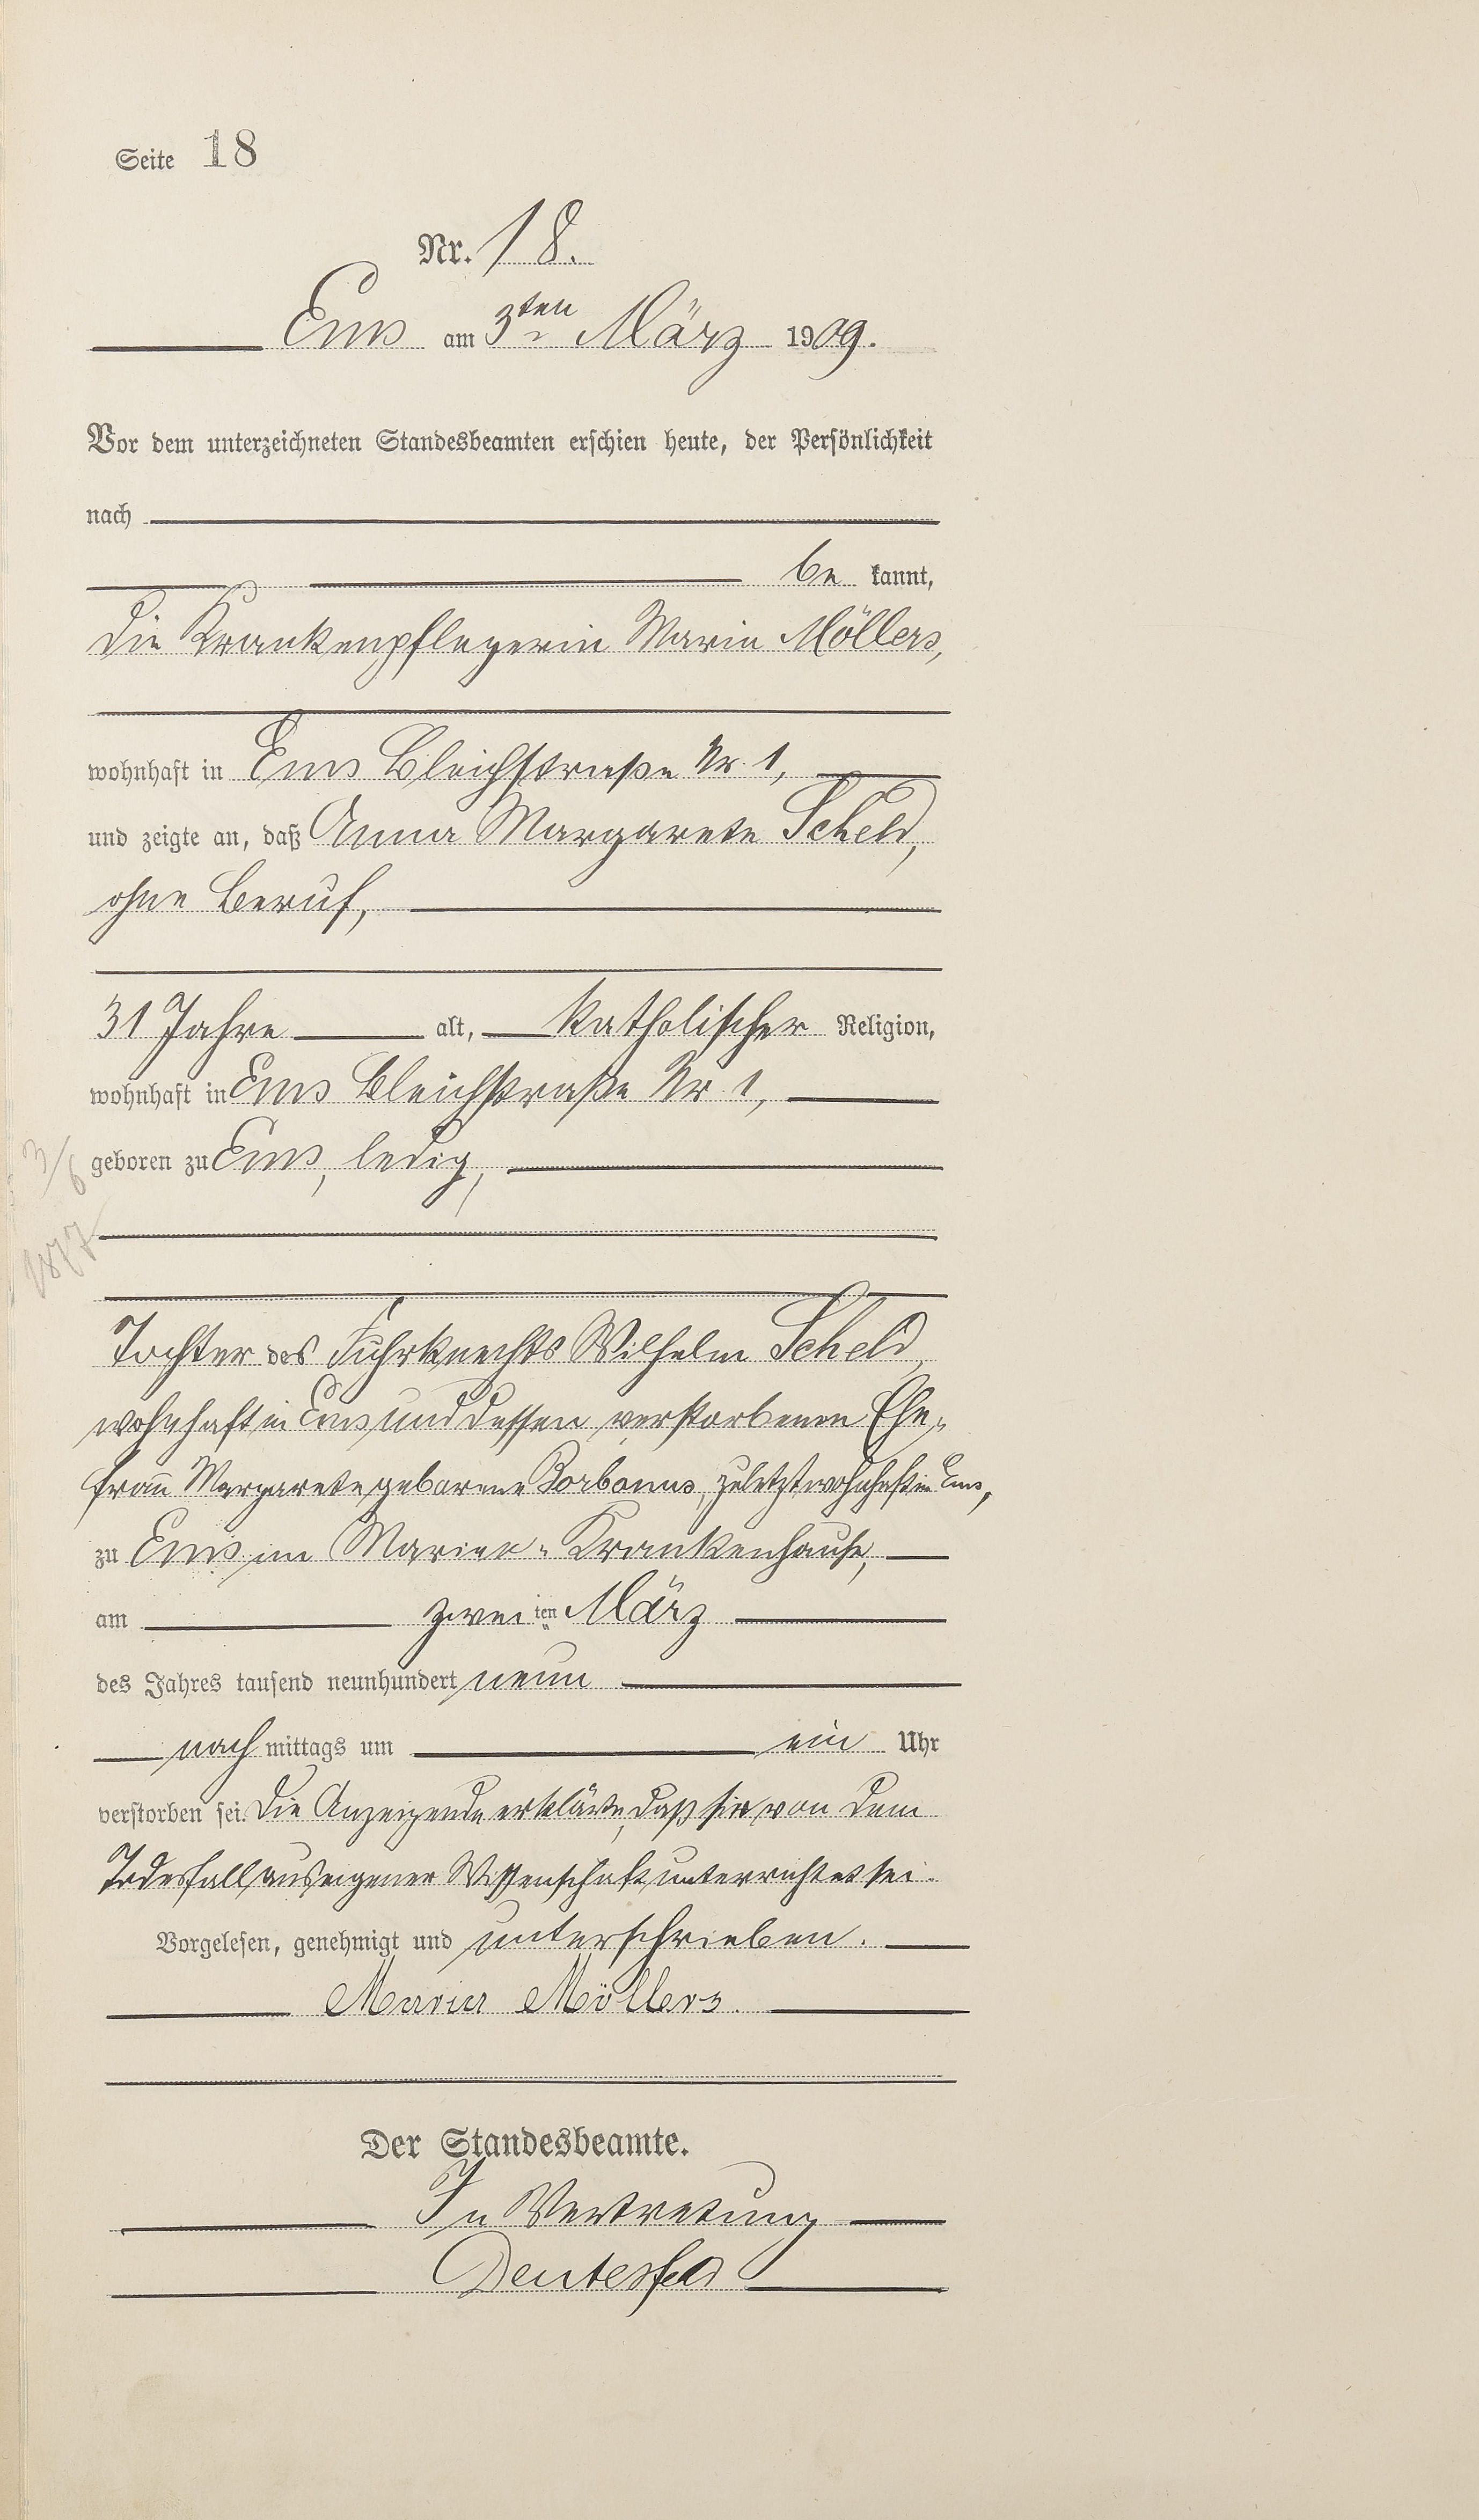 Seite 18
Nr. 18.
Ems am 3ten März 1909.
Vor dem unterzeichneten Standesbeamten erschien heute, der Persönlichkeit
nach
be kannt,
die Krankenpflegerin Maria Möllers,
wohnhaft in Ems Bleichstraße Nr 1,
und zeigte an, daß Anna Margarete Scheld,
ohne Beruf,
31 Jahre alt, katholischer Religion,
wohnhaft in Ems Bleichstraße Nr 1,
3/6 geboren zu Ems, ledig,
1877
Tochter des Fuhrknechts Wilhelm Scheld
wohnhaft in Ems und dessen verstorbenen Ehe-
frau Margarete geborene Korbonus, zuletzt wohnhaft in Ems,
zu Ems im Marien-Krankenhause,
am zwei ten März
des Jahres tausend neunhundert neun
nach mittags um ein Uhr
verstorben sei. Die Anzeigende erklärte, daß sie von dem
Todesfall aus eigener Wissenschaft unterrichtet sei.
Vorgelesen, genehmigt und unterschrieben.
Maria Möllers.
Der Standesbeamte.
In Vertretung
Deutesfeld